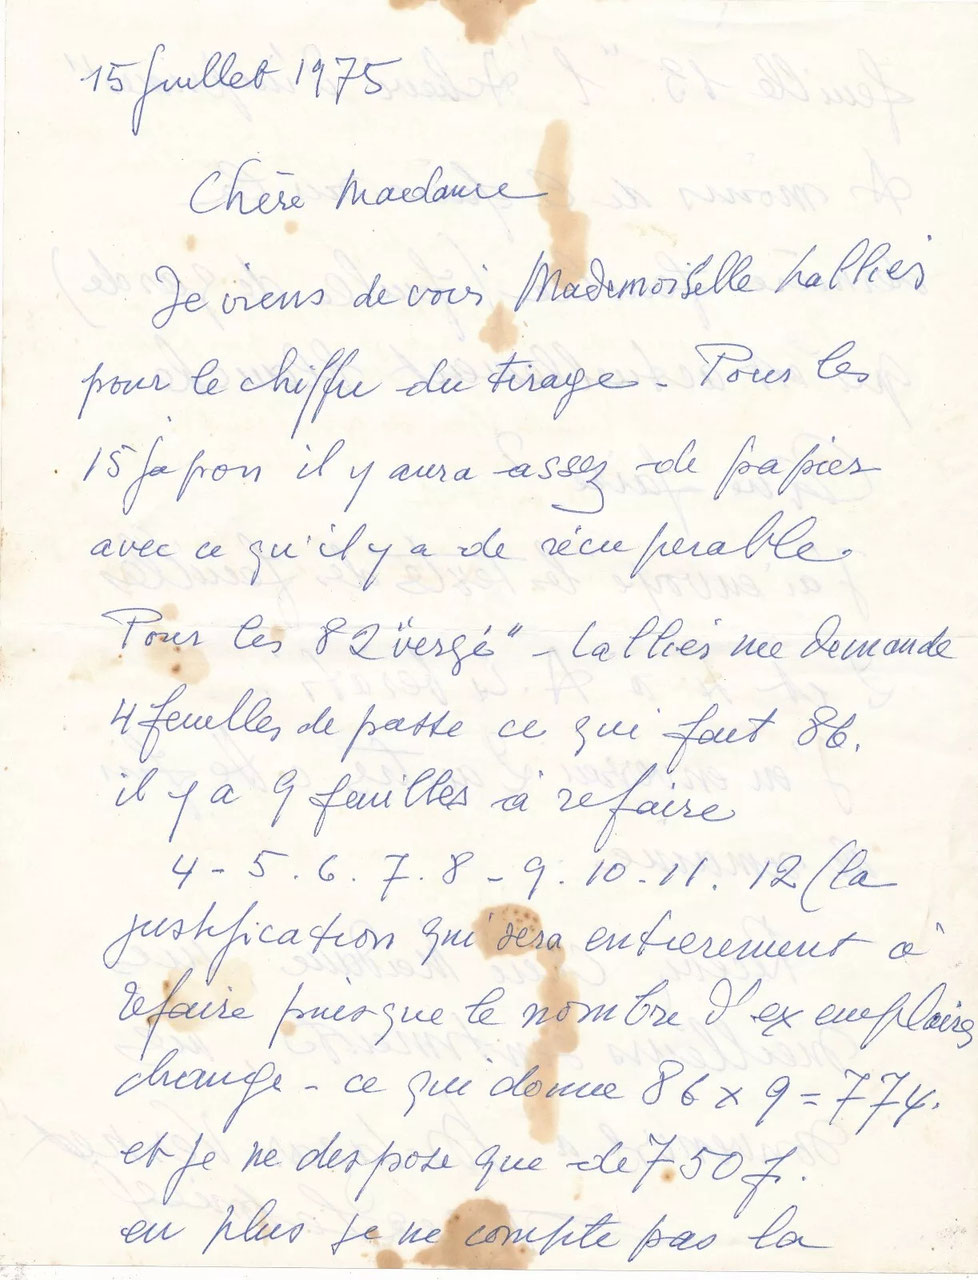 15 Juillet 1975
Chère Madame
Je viens de voir Mademoiselle Lalliès
pour le chiffre du tirage - Pour les
15 japon il y aura assez de papier
avec ce qu'il y a de récuperable.
Pour les 82 "vergé" - Lalliès me demande
4 feuilles de passe ce qui fait 86.
il y a 9 feuilles à refaire
4 - 5 . 6 . 7 . 8 - 9 . 10 - 11 . 12 (la
justification qui sera entierement à
refaire puisque le nombre d'exemplaires
change - ce qui donne 86 x 9 = 774.
et je ne dispose que de 750 f.
en plus je ne compte pas la